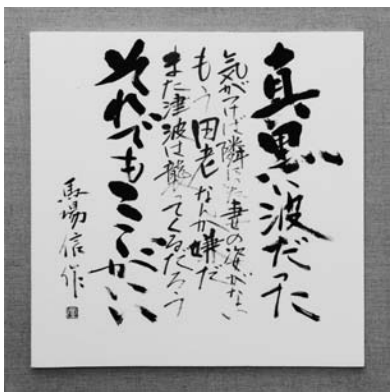 真黒い波だった
気がつけば隣にいた妻の姿がない
もう田老なんか嫌だ
また津波は襲ってくるだろう
それでもここがいい
馬場信作